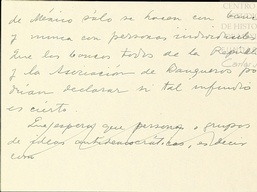 de México sólo se hacen con
y nunca con personas individuales
Que los bancos todos de la
y la Asociación de Banqueros po
drían declarar si tal infundio
es cierto.
que personas, o grupos
de antidemocráticas, es decir
com
CENTRO
DE HISTO